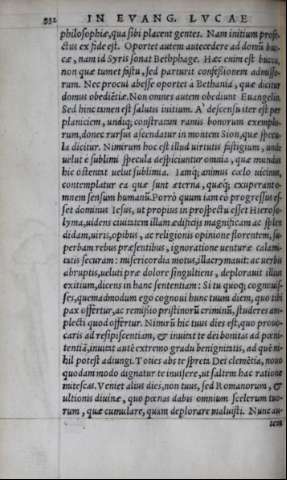 332 IN EVANG. LVCAE
philosophiæ, qua sibi placent gentes. Nam initium profe-
ctus ex fide est. Oportet autem antecedere ad domũ buc-
cæ, nam id Syris sonat Bethphage. Hæc enim est bucca,
non quæ tumet fastu, sed parturit confessionem admisso-
rum. Nec procul abesse oportet à Bethania, quæ dicitur
domus obediẽtiæ. Non omnes autem obediunt Euangelio.
Sed hinc tamen est salutis initium. A' descensu iter est per
planiciem, undiq; constratam ramis bonorum exemplo-
rum, donec rursus ascendatur in montem Sion, quæ specu-
la dicitur. Nimirum hoc est illud uirtutis fastigium, unde
uelut è sublimi specula despiciuntur omnia, quæ mundus
hic ostentat uelut sublimia. Iamq; animus cœlo uicinus,
contemplatur ea quæ sunt æterna, quæq; exuperant o-
mnem sensum humanũ. Porrò quum iam eò progressus es-
set dominus Iesus, ut propius in prospectu esset Hieroso-
lyma, uidens ciuitatem illam ædificijs magnificam ac splen
didam, uiris, opibus, ac religionis opinione florentem, su-
perbam rebus præsentibus, ignoratione uenturæ calami-
tatis securam: misericordia motus, illacrymauit: ac uerbis
abruptis, ueluti præ dolore singultiens, deplorauit illius
exitium, dicens in hanc sententiam: Si tu quoq; cognouis-
ses, quemadmodum ego cognoui hunc tuum diem, quo tibi
pax offertur, ac remissio pristinorũ criminũ, studeres am-
plecti quod offertur. Nimirũ hic tuus dies est, quo prouo-
caris ad resipiscentiam, & inuitat te dei bonitas ad pœni-
tentiã, inuitat autẽ extremo gradu benignitatis, ad quẽ ni-
hil potest adiungi. Toties abs te spreta Dei clemẽtia, nouo
quodam modo dignatur te inuisere, ut saltem hac ratione
mitescas. Veniet alius dies, non tuus, sed Romanorum, &
ultionis diuinæ, quo pœnas dabis omnium scelerum tuo-
rum, quæ cumulare, quàm deplorare maluisti. Nunc au-
tem